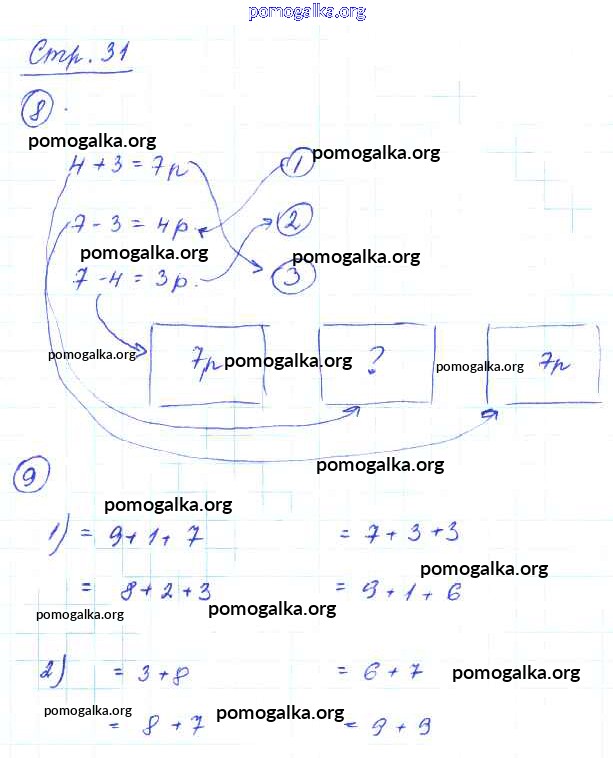 pomogalka.org
Стр. 31
8.
pomogalka.org
4 + 3 = 7р 1 pomogalka.org
7 - 3 = 4р. 2
pomogalka.org pomogalka.org
7 - 4 = 3р. 3
pomogalka.org 7р pomogalka.org ? pomogalka.org 7р
pomogalka.org
9
pomogalka.org
1) = 9 + 1 + 7 = 7 + 3 + 3
pomogalka.org
= 8 + 2 + 3 = 9 + 1 + 6
pomogalka.org pomogalka.org
2) = 3 + 8 = 6 + 7 pomogalka.org
pomogalka.org pomogalka.org
= 8 + 7 = 9 + 9